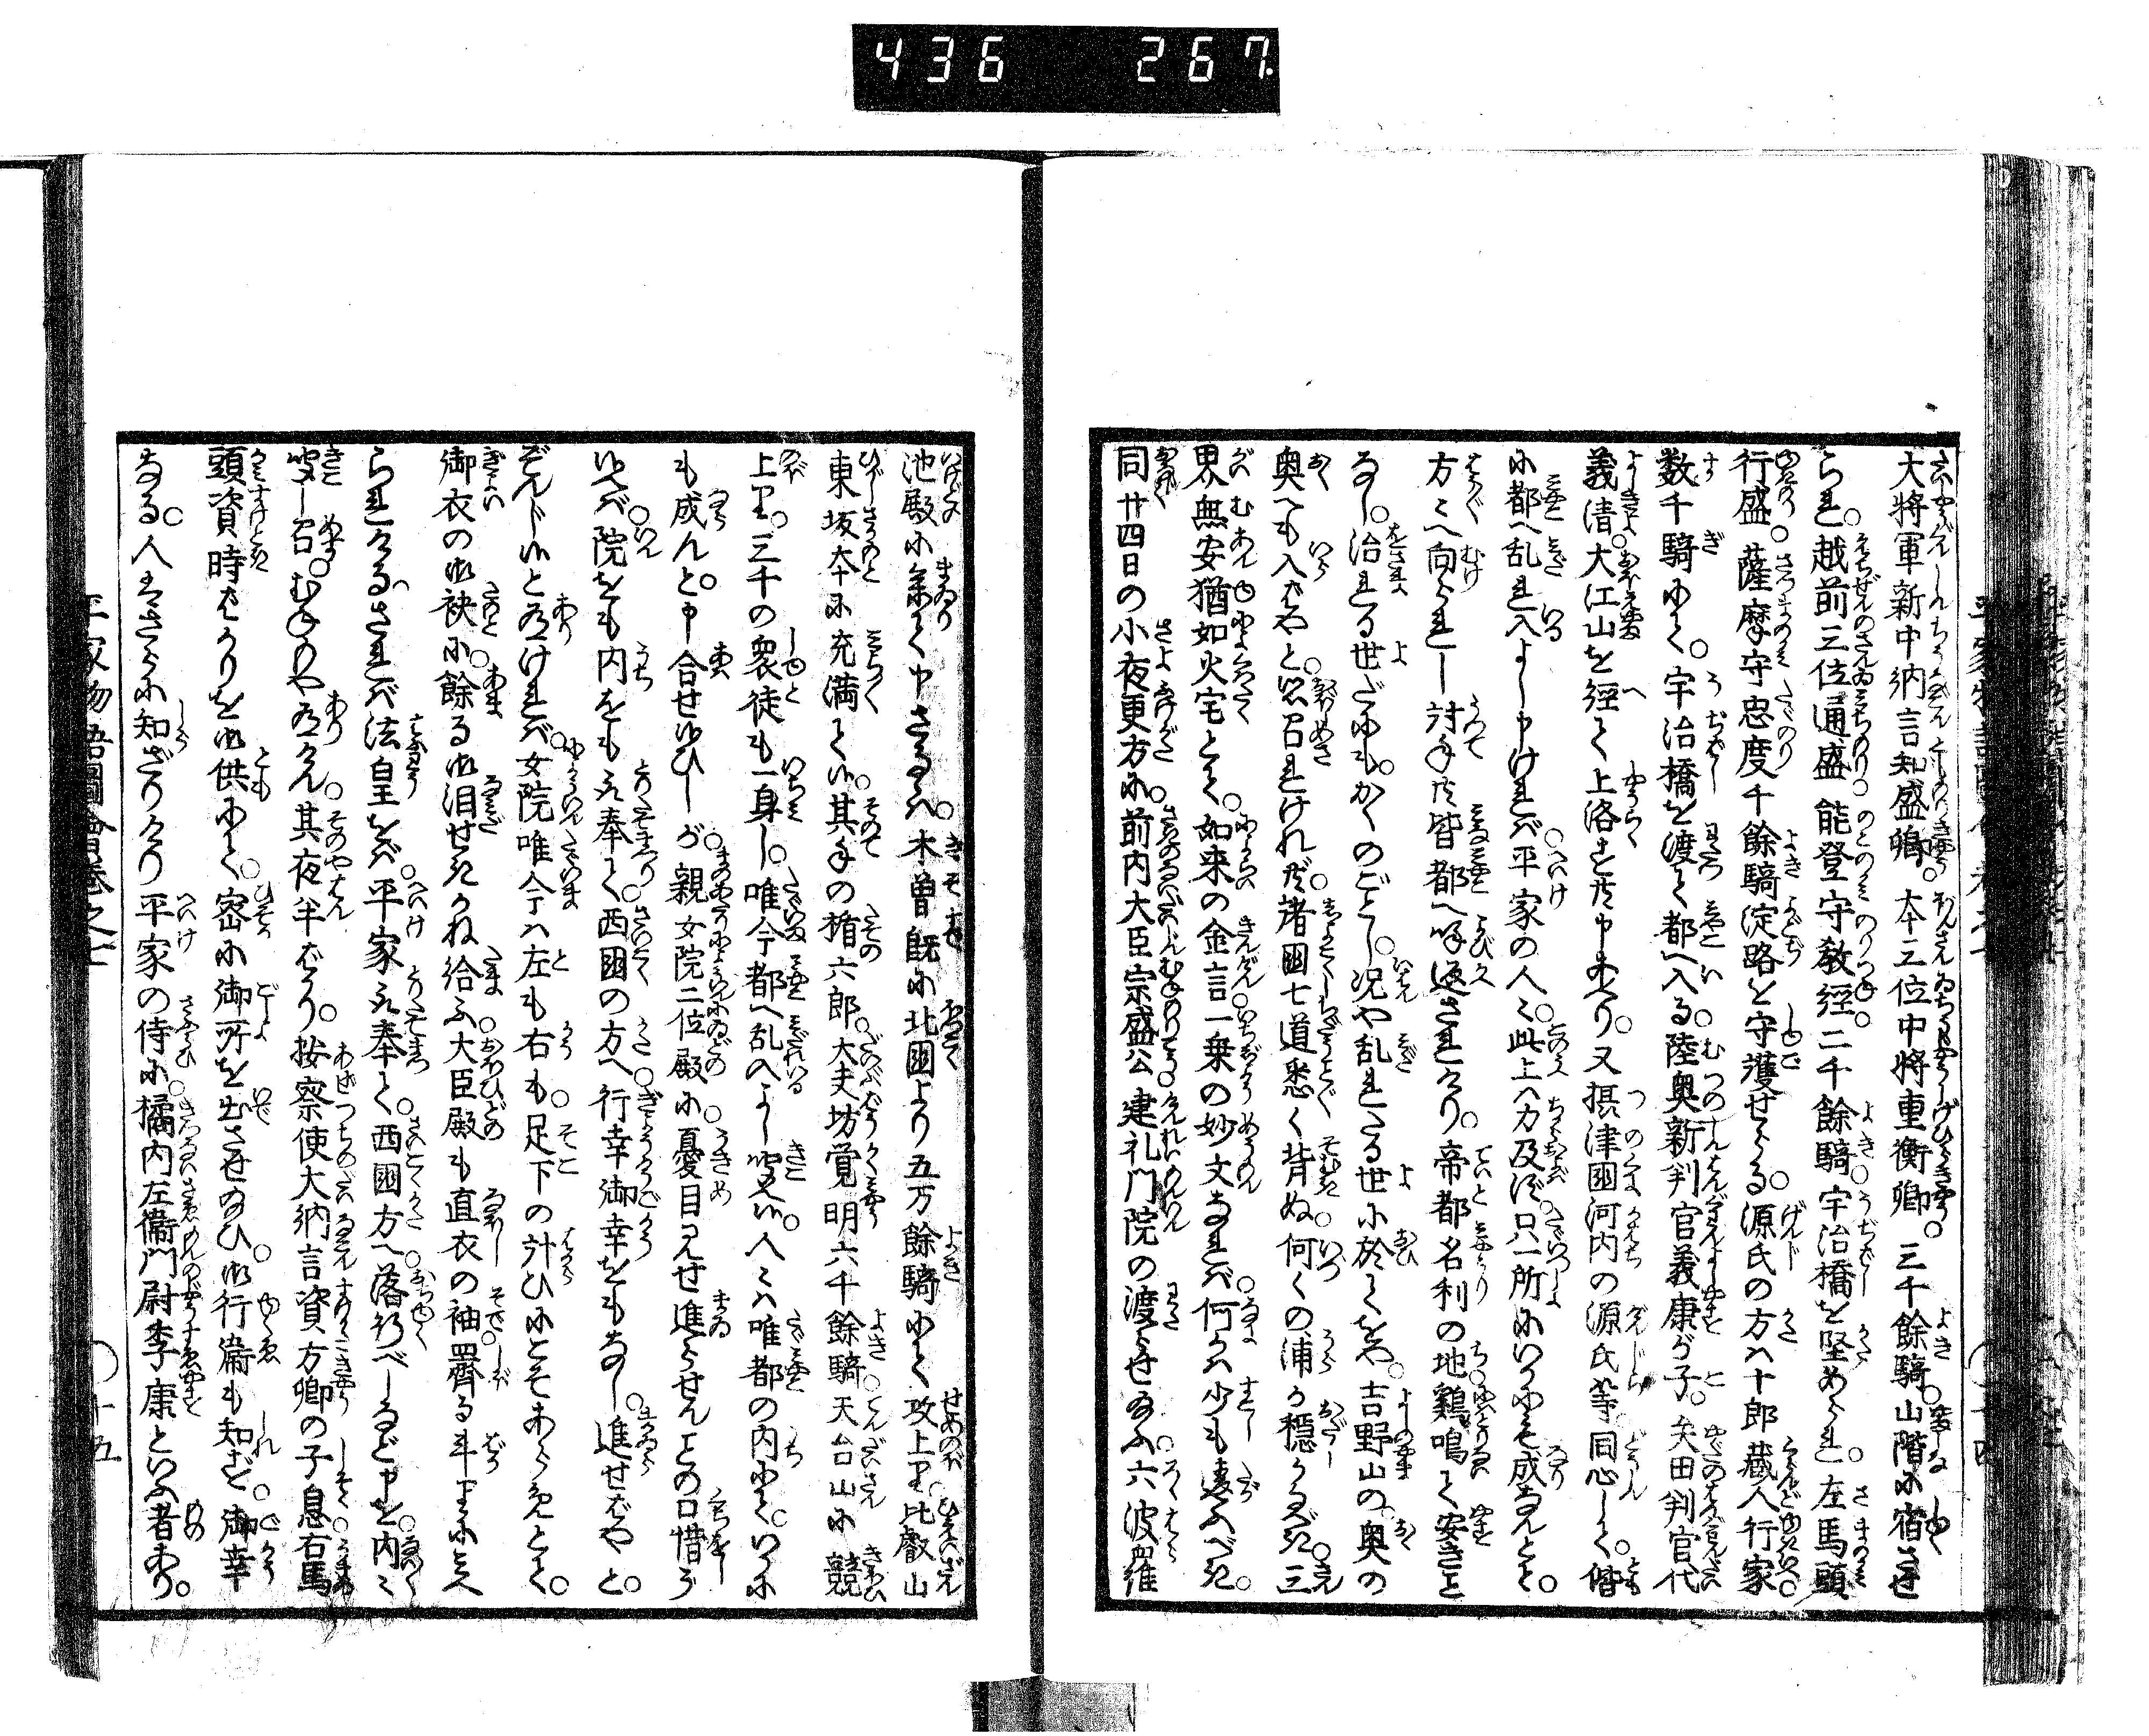 436 267
大将軍新中納言知盛卿。本三位中将重衡卿。三千餘騎山階に宿させ
られ。越前三位通盛。能登守教経。二千餘騎。宇治橋を堅めらる。左馬頭
行盛。薩摩守忠度千餘騎淀路を守護せらる。源氏の方ハ十郎蔵人行家。
数千騎にて。宇治橋を渡て都へ入る。陸奥新判官義康が子。矢田判官代
義清。大江山を経て上洛すと申あへり。又摂津国河内の源氏等同心して。偕
に都へ乱れ入よし申けれバ平家の人々。此上ハ力及ず。只一所にいかにも成なんとて。
方々へ向られし討手共皆都へ呼返されけり。帝都名利の地鶏鳴て安きこと
なし。治れる世だにも。かくのごとし。况や乱れたる世に於てをや。吉野山の奥の
奥へも入ばやと。思召れけれ共。諸国七道悉く背ぬ。何くの浦か穏かるべき。三
界無安猶如火宅とて。如来の金言一乗の妙文なれバ。何かハ少も違ふべき。
同廿四日の小夜更方に。前内大臣宗盛公建礼門院の渡らせ給ふ。六波羅
池殿に参て申さるゝハ。木曽既に北国より五万餘騎にて攻上り。比叡山
東坂本に充満て候。其手の楯六郎。大夫坊覚明六千餘騎。天台山に競
上り。三千の衆徒も一身し。唯今都へ乱入よし聞え候。人々ハ唯都の内にて。いかに
も成んと。申合せ候ひしが。親女院二位殿に。憂目見せ進らせんことの口惜う
候へバ。院をも内をも取奉て。西国の方へ。行幸御幸をもなし。進せばやと。
ぞんじ候と有けれバ。女院唯今ハ左も右も。足下の計ひにとそあらめとて。
御衣の御袂に。餘る御泪せきかね給ふ。大臣殿も直衣の袖。罾る斗りに見へ
られける。されバ法皇をバ。平家取奉て。西国方へ。落行べしなど申を。内々
聞し召。むねもや有けん。其夜半ばかり。按察使大納言資方卿の子息。右馬
頭資時ばかりを御供にて。密に御所を出させ給ひ。御行衛も知ず。御幸
なる。人是さらに知ざりけり平家の侍に。橘内左衛門尉季康といふ者あり。
平家物語圖會巻之七
十五